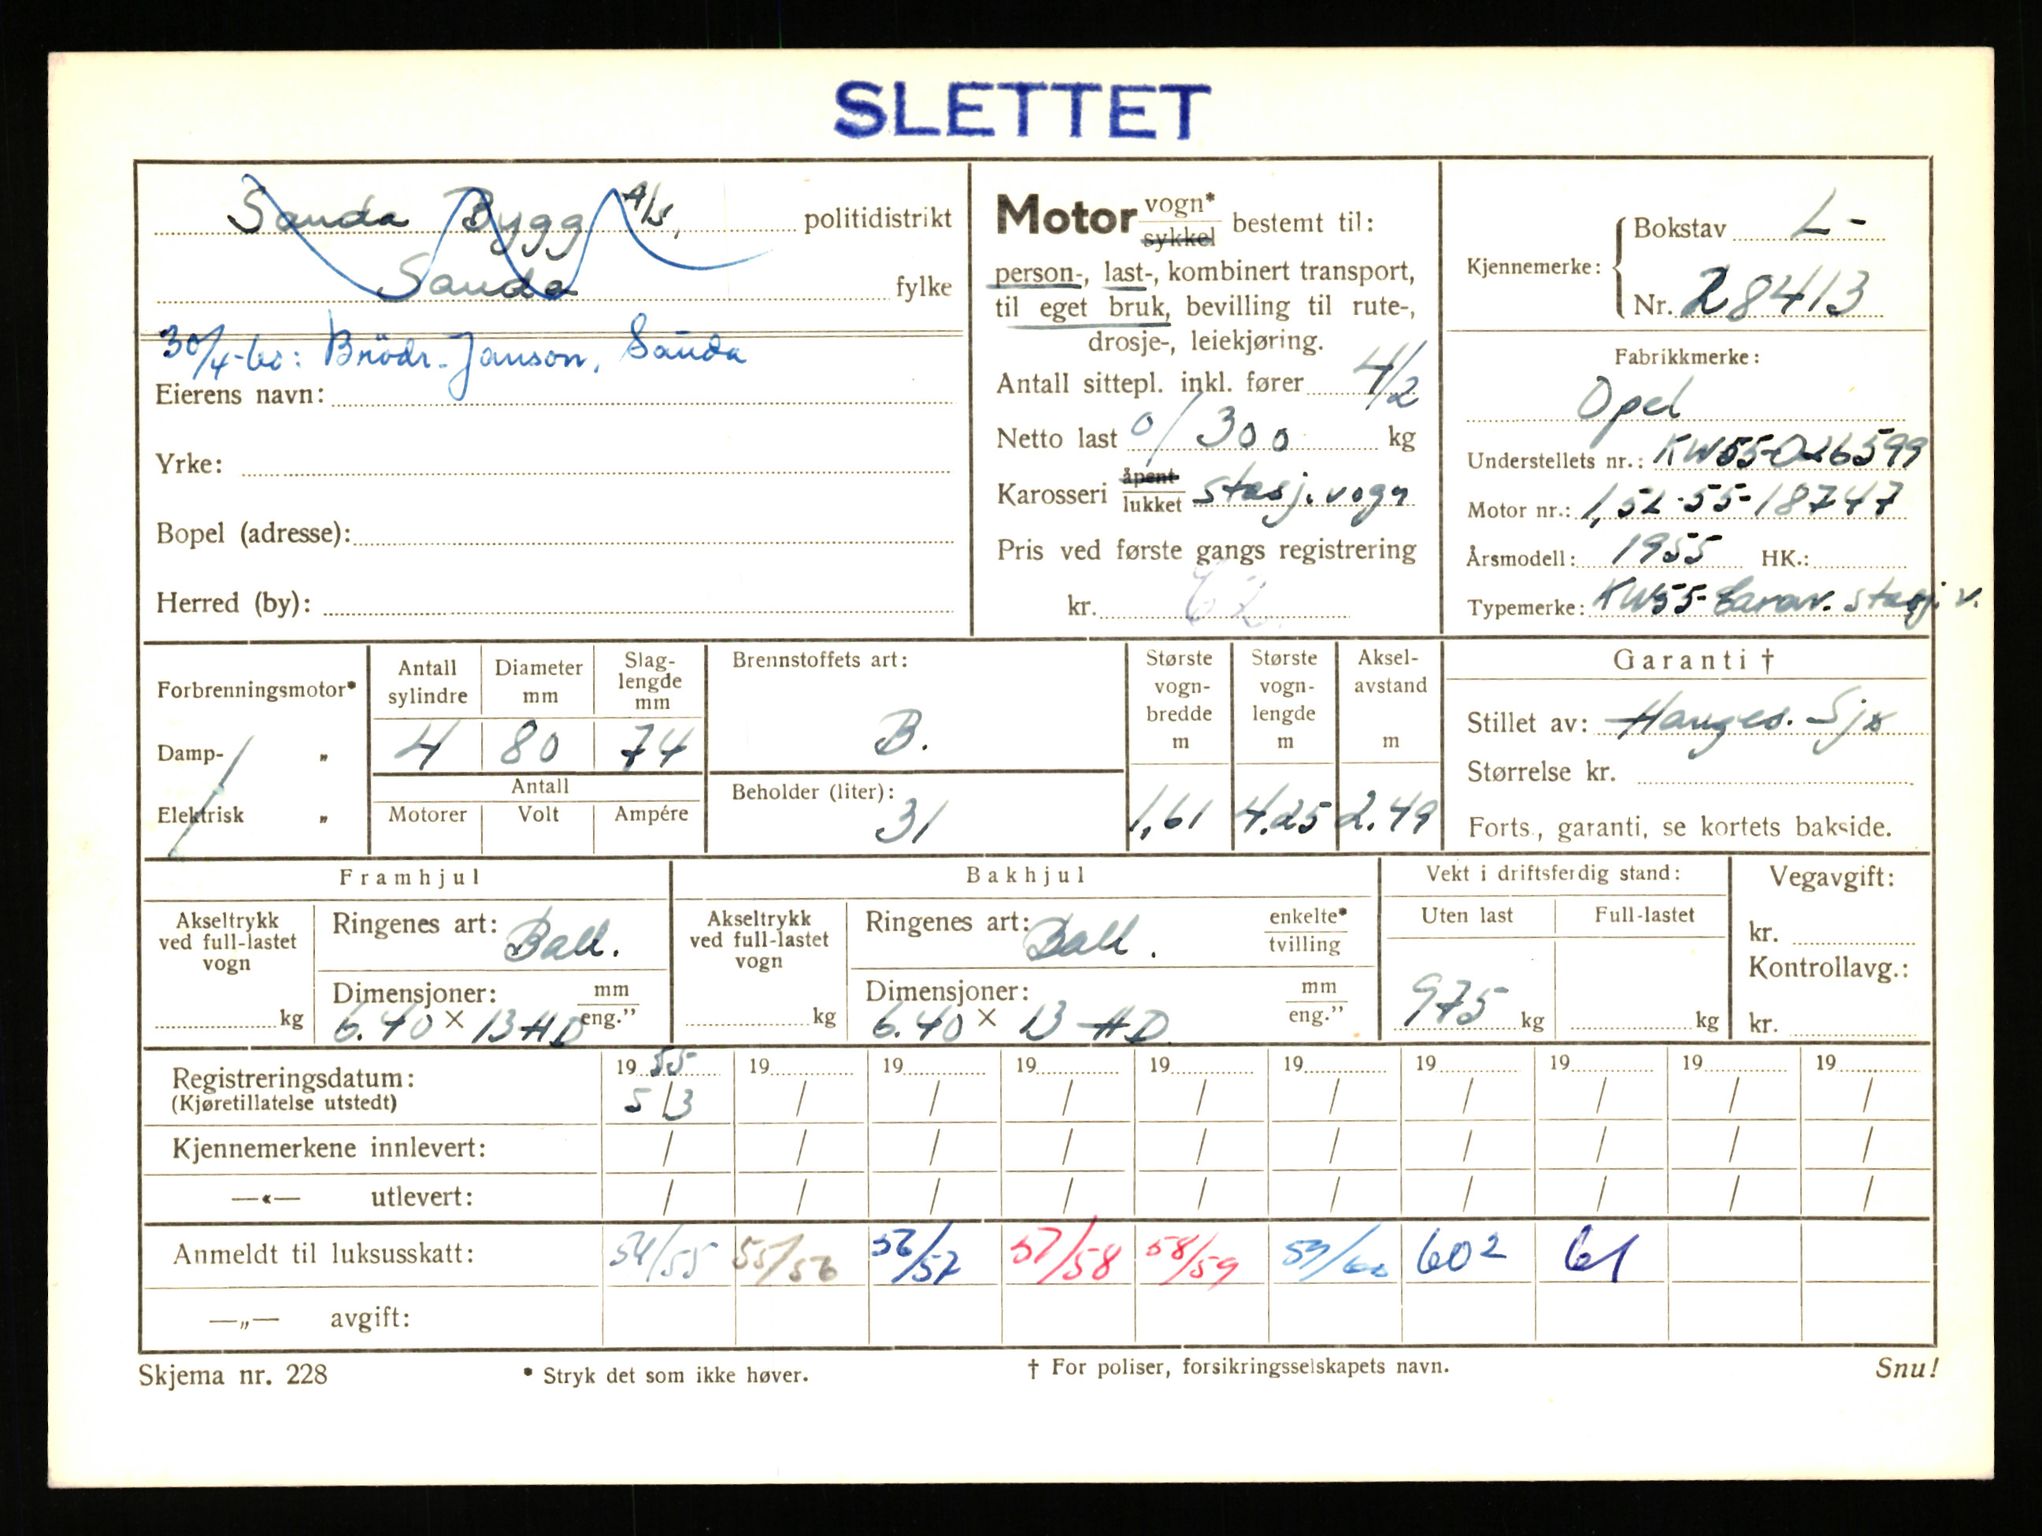 SLETTET
Sauda Bygg A/S, politidistrikt
Sauda fylke
30/4-60: Brödr. Janson, Sauda
Eierens navn:
Yrke:
Bopel (adresse):
Herred (by):
Motor vogn* sykkel bestemt til:
person-, last-, kombinert transport,
til eget bruk, bevilling til rute-,
drosje-, leiekjøring.
Antall sittepl. inkl. fører 4/2
Netto last 0/300 kg
Karosseri åpent lukket stasj.vogn
Pris ved første gangs registrering
kr. 62
Kjennemerke: Bokstav L-
Nr. 28413
Fabrikkmerke:
Opel
Understellets nr.: KW55-026599
Motor nr.: 1,5L-55-18747
Årsmodell: 1955 HK.:
Typemerke: KW55-Carav. stasj.v.
Forbrenningsmotor*
Damp- „
Elektrisk „
Antall sylindre 4
Diameter mm 80
Slaglengde mm 74
Antall
Motorer Volt Ampére
Brennstoffets art:
B.
Beholder (liter):
31
Største vognbredde m 1,61
Største vognlengde m 4.25
Akselavstand m 2.49
Garanti †
Stillet av: Hauges. Sjø
Størrelse kr.
Forts., garanti, se kortets bakside.
Framhjul
Akseltrykk ved full-lastet vogn
kg
Ringenes art: Ball.
Dimensjoner: mm eng."
6.40 × 13 HD
Bakhjul
Akseltrykk ved full-lastet vogn
kg
Ringenes art: Ball. enkelte* tvilling
Dimensjoner: mm eng."
6.40 × 13 HD
Vekt i driftsferdig stand:
Uten last Full-lastet
975 kg kg
Vegavgift:
kr.
Kontrollavg.:
kr.
Registreringsdatum: 19 55 19 19 19 19 19 19 19 19 19
(Kjøretillatelse utstedt) 5/3 / / / / / / / / /
Kjennemerkene innlevert: / / / / / / / / / /
—«— utlevert: / / / / / / / / / /
Anmeldt til luksusskatt: 54/55 55/56 56/57 57/58 58/59 59/60 60² 61
—„— avgift:
Skjema nr. 228 * Stryk det som ikke høver. † For poliser, forsikringsselskapets navn. Snu!